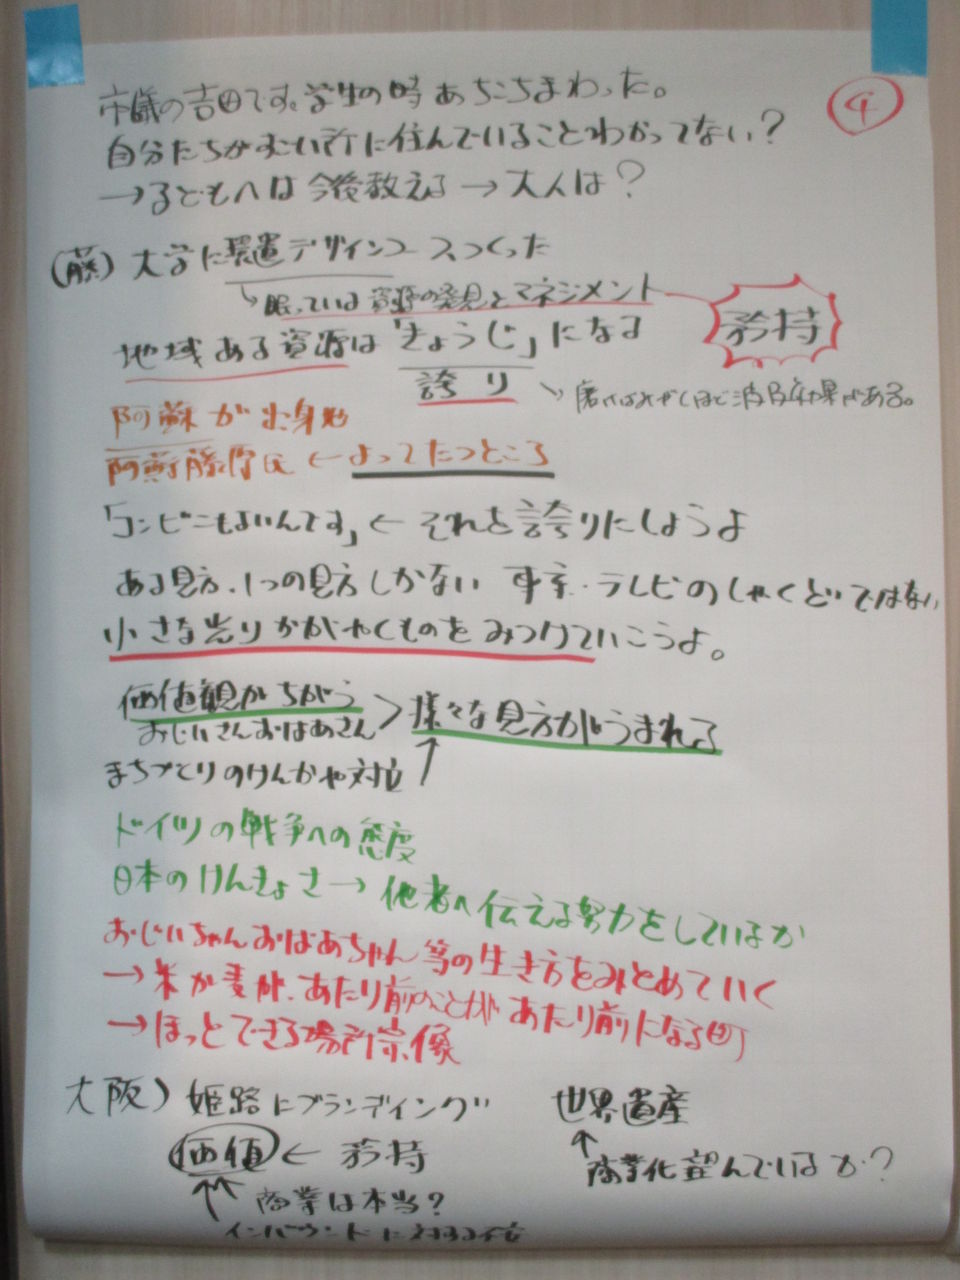 市議の吉田です。学生の時あちこちまわった。
④
自分たちがすごい所に住んでいることわかってない?
→子どもへは今後教える→大人は?
(藤)大学に装置デザインコースつくった
↳眠っている資源の発見とマネジメント
矜持
地域ある資源は「きょうじ」になる
誇り
↘磨けばみがくほど波及効果がある。
阿蘇が出身地
阿蘇藤原氏←よってたつところ
「コンビニもよいんです」←それを誇りにしようよ
ある見方、1つの見方しかない 東京・テレビのしゃくどではない
小さな光りかがやくものをみつけていこうよ。
価値観がちがう
おじいさんおばあさん
>様々な見方がうまれる
まちづくりのけんかや対立↑
ドイツの戦争への態度
日本のけんきょさ→他者へ伝える努力をしているか
おじいちゃんおばあちゃん等の生き方をみとめていく
→米が麦が、あたり前のことがあたり前になる町
→ほっとできる場所宗像
大阪) 姫路にブランディング 世界遺産
価値←矜持
↑商業化望んでいるか?
↑↑商業は本当?
インバウンドに対する